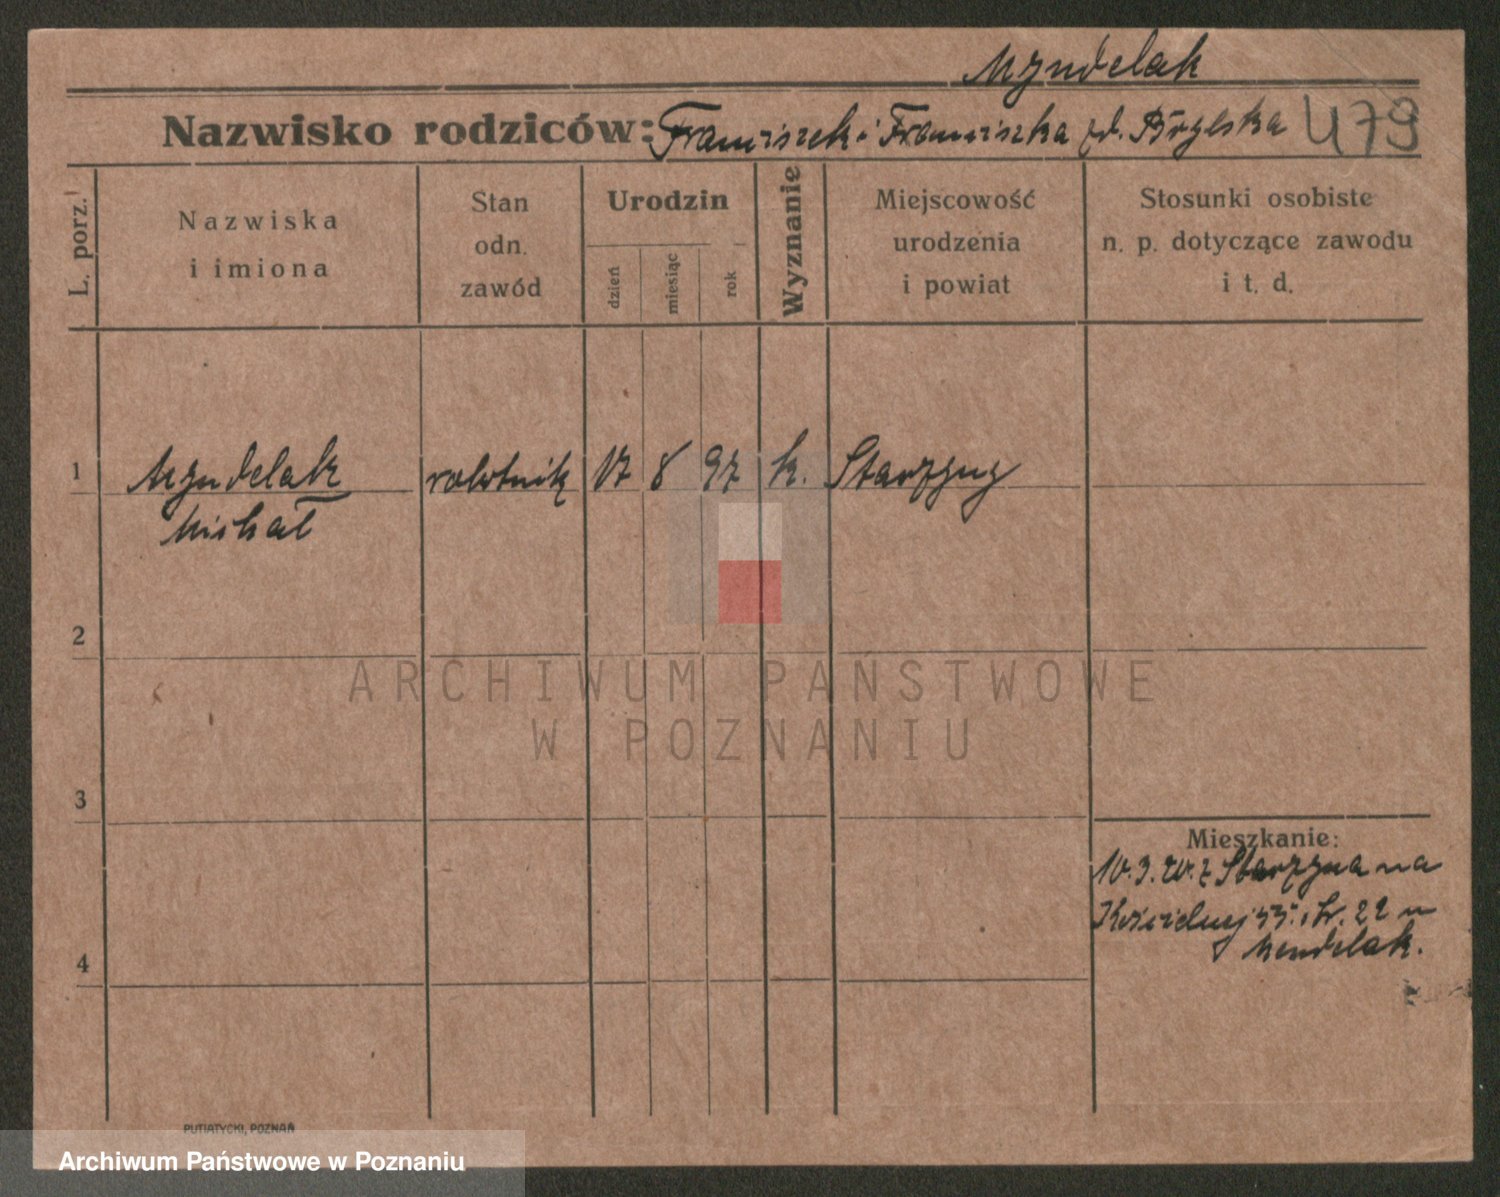 Myndelak
Nazwisko rodziców: Franciszek i Franciszka zd.
479
L. porz.
Nazwiska
i imiona
Stan
odn.
zawód
Urodzin
dzień
miesiąc
rok
Wyznanie
Miejscowość
urodzenia
i powiat
Stosunki osobiste
n. p. dotyczące zawodu
i t. d.
1
Myndelak robotnik 17 8 97 k.
Michał
2
ARCHIWUM PAŃSTWOWE
W POZNANIU
3
Mieszkanie:
10.3.20. z na
22 u
4
Mendelak.
PUTIATYCKI, POZNAŃ
Archiwum Państwowe w Poznaniu